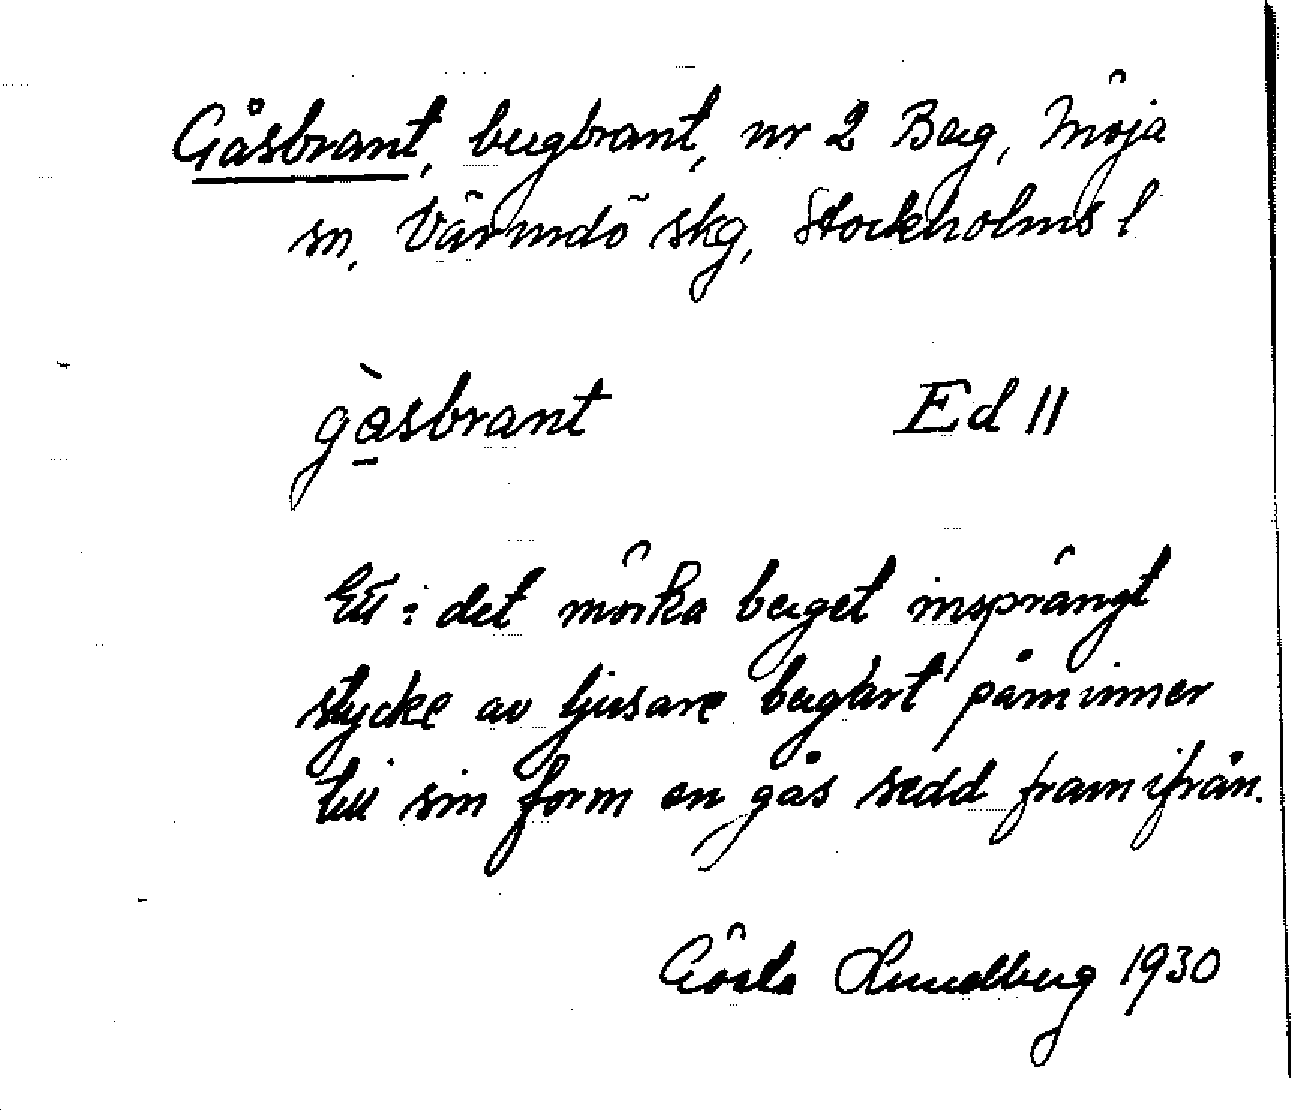 Gåsbrant, bergbrant, nr 2 Berg, Möja
sn, Värmdö skg, Stockholms l
gàsbrant Ed 11
Ett i det mörka berget insprängt
stycke av ljusare bergart påminner
till sin form en gås sedd framifrån.
Gösta Lundberg 1930